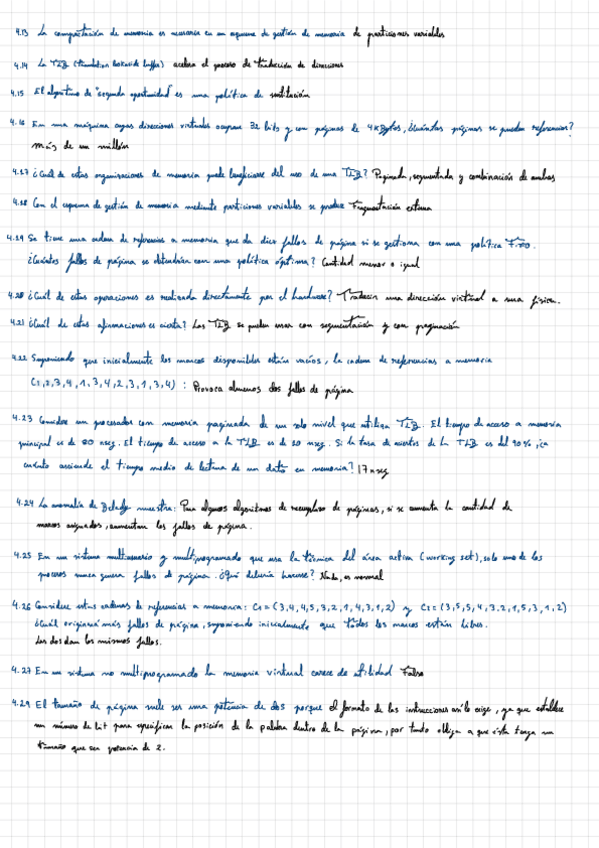 4.13 La compactación de memoria es necesaria en un esquema de gestión de memoria de particiones variables
4.14 La TLB (translation lookaside buffer) acelera el proceso de traducción de direcciones
4.15 El algoritmo de "segunda oportunidad" es una política de sustitución
4.16 En una máquina cuyas direcciones virtuales ocupan 32 bits y con páginas de 4 KBytes, ¿cuántas páginas se pueden referenciar?
más de un millón
4.17 ¿Cuál de estas organizaciones de memoria puede beneficiarse del uso de una TLB? Paginada, segmentada y combinación de ambas
4.18 Con el esquema de gestión de memoria mediante particiones variables se produce Fragmentación externa
4.19 Se tiene una cadena de referencias a memoria que da diez fallos de página si se gestiona con una política FIFO.
¿Cuántos fallos de página se obtendrían con una política óptima? Cantidad menor o igual
4.20 ¿Cuál de estas operaciones es realizada directamente por el hardware? Traducir una dirección virtual a una física.
4.21 ¿Cuál de estas afirmaciones es cierta? Las TLB se pueden usar con segmentación y con paginación
4.22 Suponiendo que inicialmente los marcos disponibles están vacíos, la cadena de referencias a memoria
(1,2,3,4,1,3,4,2,3,1,3,4) : Provoca almenos dos fallos de página
4.23 Considere un procesador con memoria paginada de un solo nivel que utiliza TLB. El tiempo de acceso a memoria
principal es de 80 nseg. El tiempo de acceso a la TLB es de 10 nseg. Si la tasa de aciertos de la TLB es del 90%, ¿a
cuánto asciende el tiempo medio de lectura de un dato en memoria? 17 nseg
4.24 La anomalía de Belady muestra: Para algunos algoritmos de reemplazo de páginas, si se aumenta la cantidad de
marcos asignados, aumentan los fallos de página.
4.25 En un sistema multiusuario y multiprogramado que usa la técnica del área activa (working set), solo uno de los
procesos nunca genera fallos de página. ¿Qué debería hacerse? Nada, es normal
4.26 Considere estas cadenas de referencias a memoria: C1 = (3,4,4,5,3,2,1,4,3,1,2) y C2 = (3,5,5,4,3,2,1,5,3,1,2)
¿Cuál originará más fallos de página, suponiendo inicialmente que todos los marcos están libres.
Las dos dan los mismos fallos.
4.27 En un sistema no multiprogramado la memoria virtual carece de utilidad Falso
4.29 El tamaño de página suele ser una potencia de dos porque el formato de las instrucciones así lo exige, ya que establece
un número de bit para especificar la posición de la palabra dentro de la página, por tanto obliga a que ésta tenga un
tamaño que sea potencia de 2.